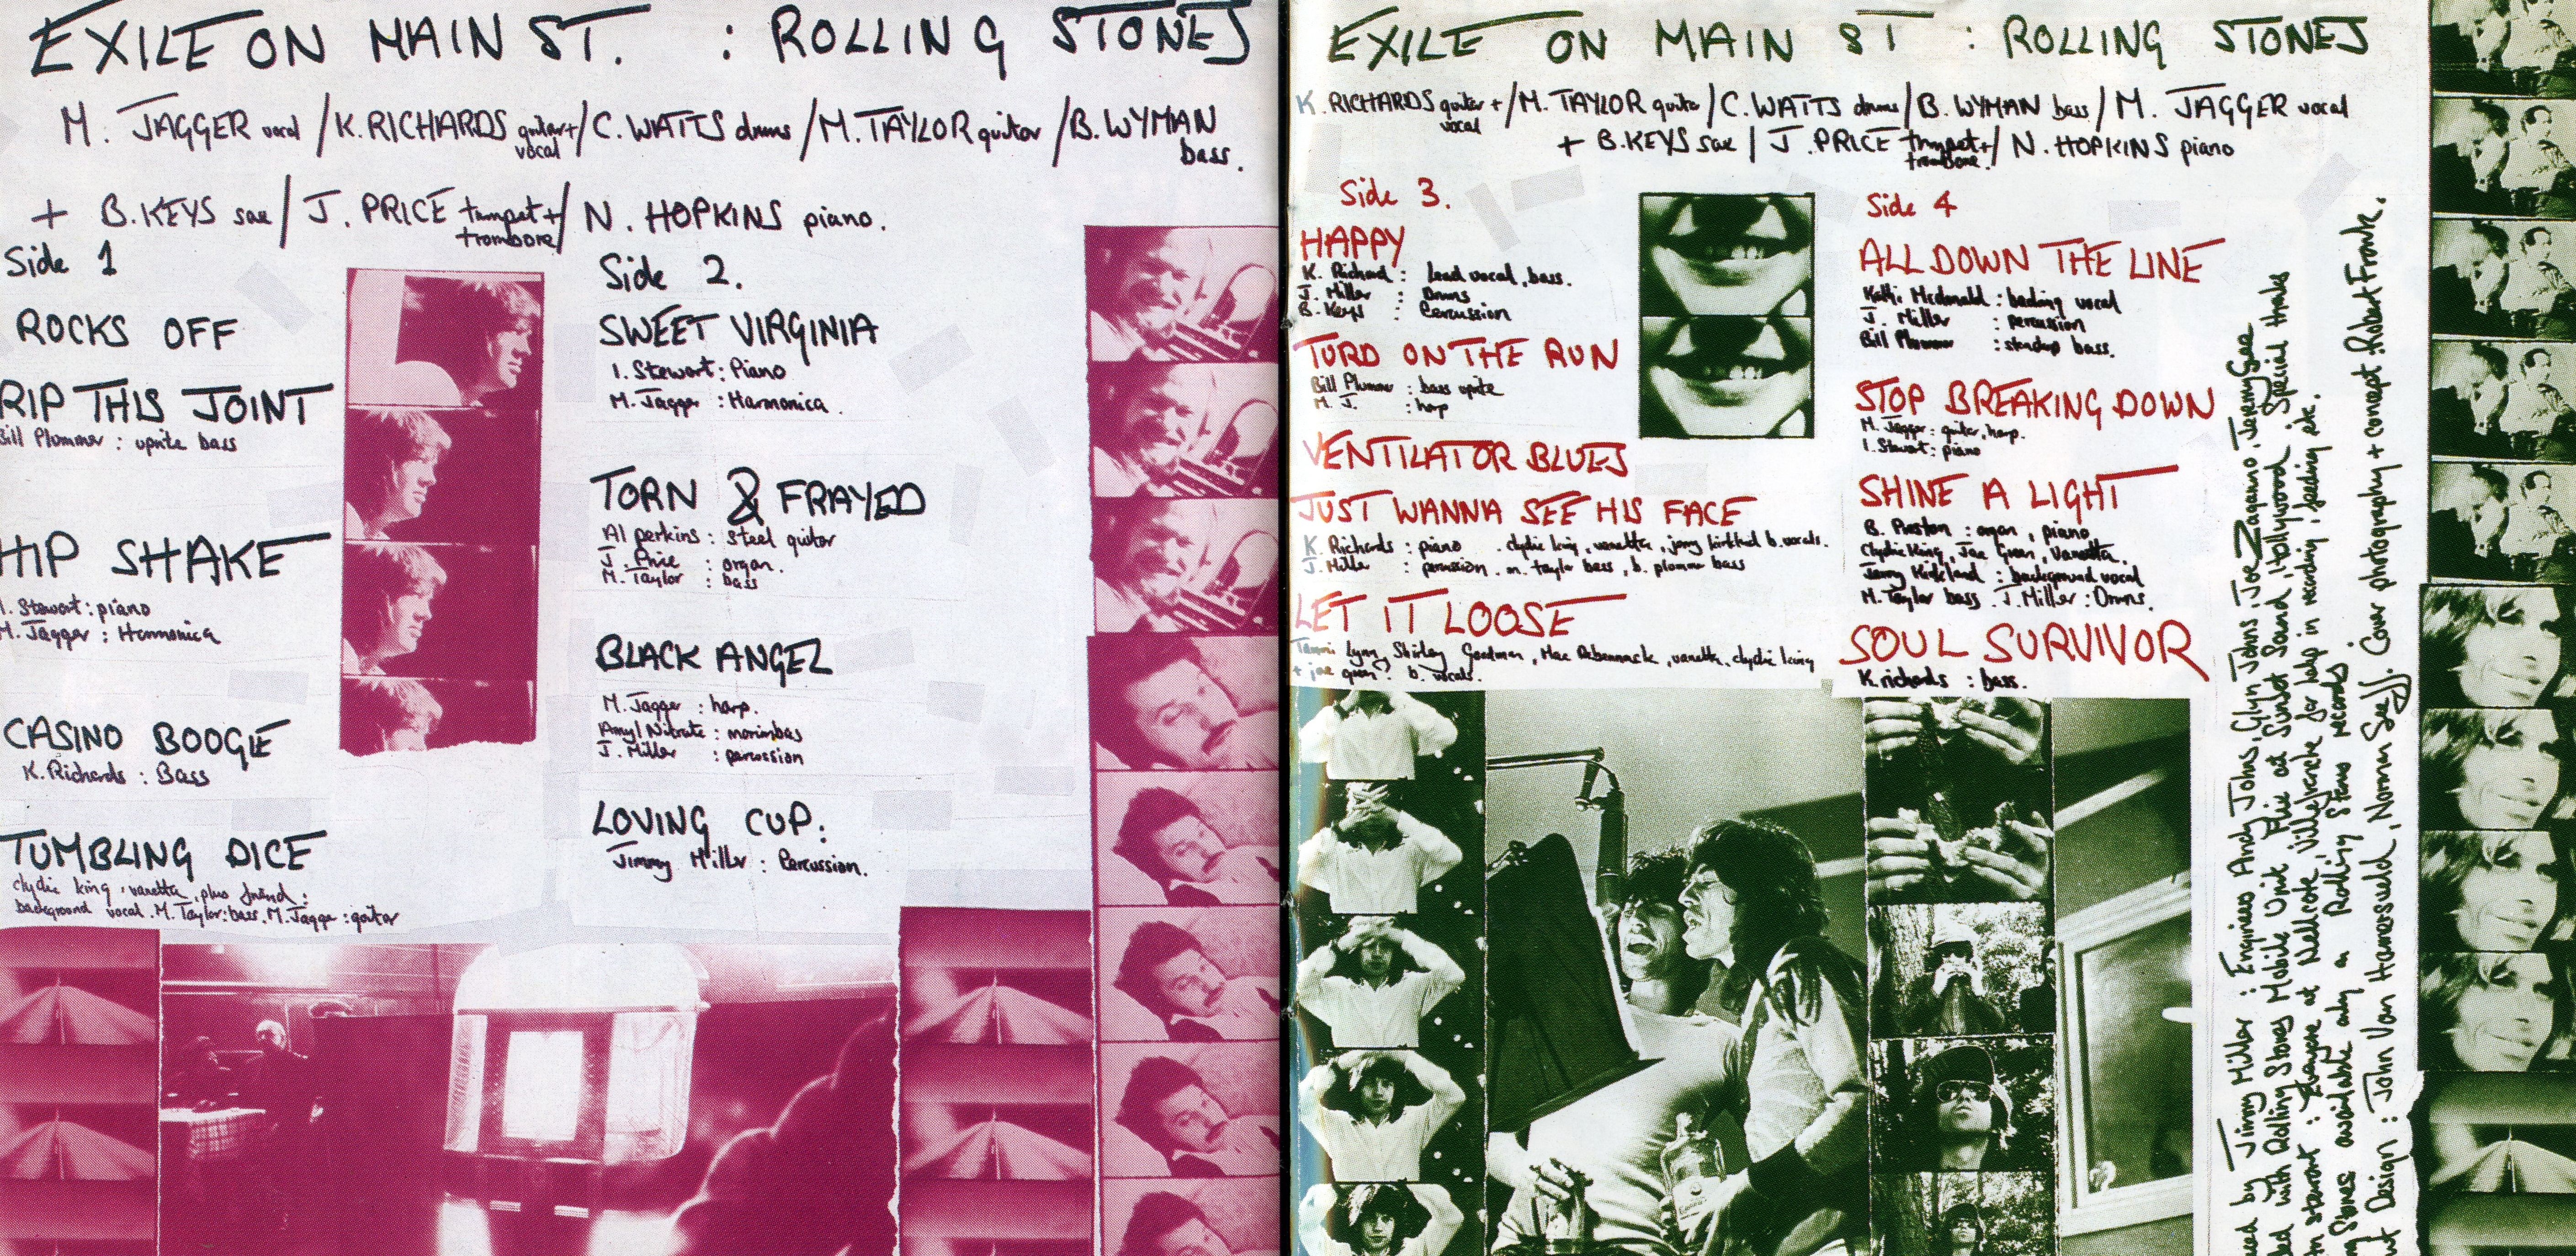 EXILE ON MAIN ST. : ROLLING STONES
M. JAGGER vocal / K. RICHARDS guitar + vocal / C. WATTS drums / M. TAYLOR guitar / B. WYMAN bass.
+ B. KEYS sax / J. PRICE trumpet + trombone / N. HOPKINS piano.
Side 1
ROCKS OFF
RIP THIS JOINT
Bill Plummer : uprite bass
HIP SHAKE
I. Stewart : piano
M. Jagger : Harmonica
CASINO BOOGIE
K. Richards : Bass
TUMBLING DICE
clydie king, vanetta, plus friend :
background vocal. M. Taylor : bass, M. Jagger : guitar
Side 2.
SWEET VIRGINIA
I. Stewart : Piano
M. Jagger : Harmonica.
TORN & FRAYED
Al perkins : steel guitar
J. Price : organ.
M. Taylor : bass
BLACK ANGEL
M. Jagger : harp.
Amyl Nitrate : marimbas
J. Miller : percussion
LOVING CUP :
Jimmy Miller : Percussion.
EXILE ON MAIN ST : ROLLING STONES
K. RICHARDS guitar + vocal / M. TAYLOR guitar / C. WATTS drums / B. WYMAN bass / M. JAGGER vocal
+ B. KEYS sax / J. PRICE trumpet + trombone / N. HOPKINS piano
Side 3.
HAPPY
K. Richard : Lead vocal, bass.
J. Miller : Drums
B. Keys : Percussion
TURD ON THE RUN
Bill Plummer : bass uprite
M. J. : harp
VENTILATOR BLUES
JUST WANNA SEE HIS FACE
K. Richards : piano . clydie king, vanetta, jerry kirkland b. vocals.
J. Miller : percussion. m. taylor bass, b. plummer bass
LET IT LOOSE
Tammi Lynn, Shirley Goodman, Mac Rebennack, vanetta, clydie king
+ joe green : b. vocals.
Side 4
ALL DOWN THE LINE
Kathi Mcdonald : backing vocal
J. Miller : percussion
Bill Plummer : standup bass.
STOP BREAKING DOWN
M. Jagger : guitar, harp.
I. Stewart : piano
SHINE A LIGHT
B. Preston : organ, piano
Clydie King, Joe Green, Vanetta.
Jerry Kirkland : background vocal
M. Taylor bass . J. Miller : Drums.
SOUL SURVIVOR
K. richards : bass.
by Jimmy Miller : Engineers Andy Johns, Glyn Johns, Joe Zaganno, Jeremy Gee
with Rolling Stones Mobile Unit Plus at Sunset Sound, Hollywood. Special thanks
stewart : at Nellcote, Villefranche for help in recording, feeding etc.
Stones available only on Rolling Stones records.
Design : John Van Hamersveld, Norman Seeff. Cover photography + concept : Robert Frank.